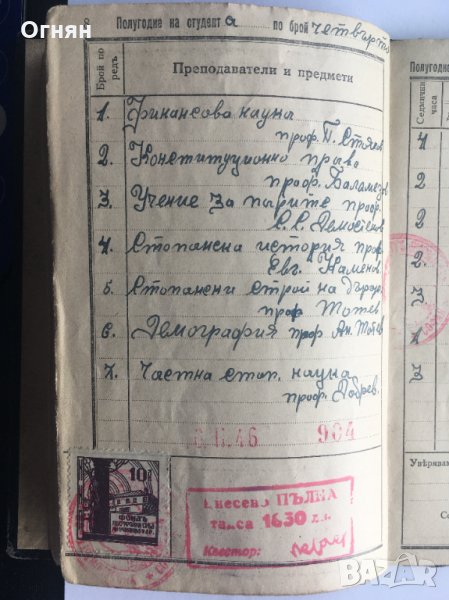 Огнян
8
Полугодие на студент а по брой четвърто
Полугодие
Брой по редъ
Преподаватели и предмети
Седмична часа
1. Финансова наука
проф. П. Стоянов
4
2. Конституционно право
проф. Баламезов
2
3. Учение за парите проф.
С. С. Демостенов
2
4. Стопанска история проф.
Евг. Каменов
2
5. Стопански строй на
проф Тотев
3
6. Демография проф Ан. Тотев
7. Частна стоп. наука
проф. Добрев.
3
46 904
10
ФОНДЪ
Внесена ПЪЛНА
такса 1630 лв.
Квестор:
Уверявам
bazar